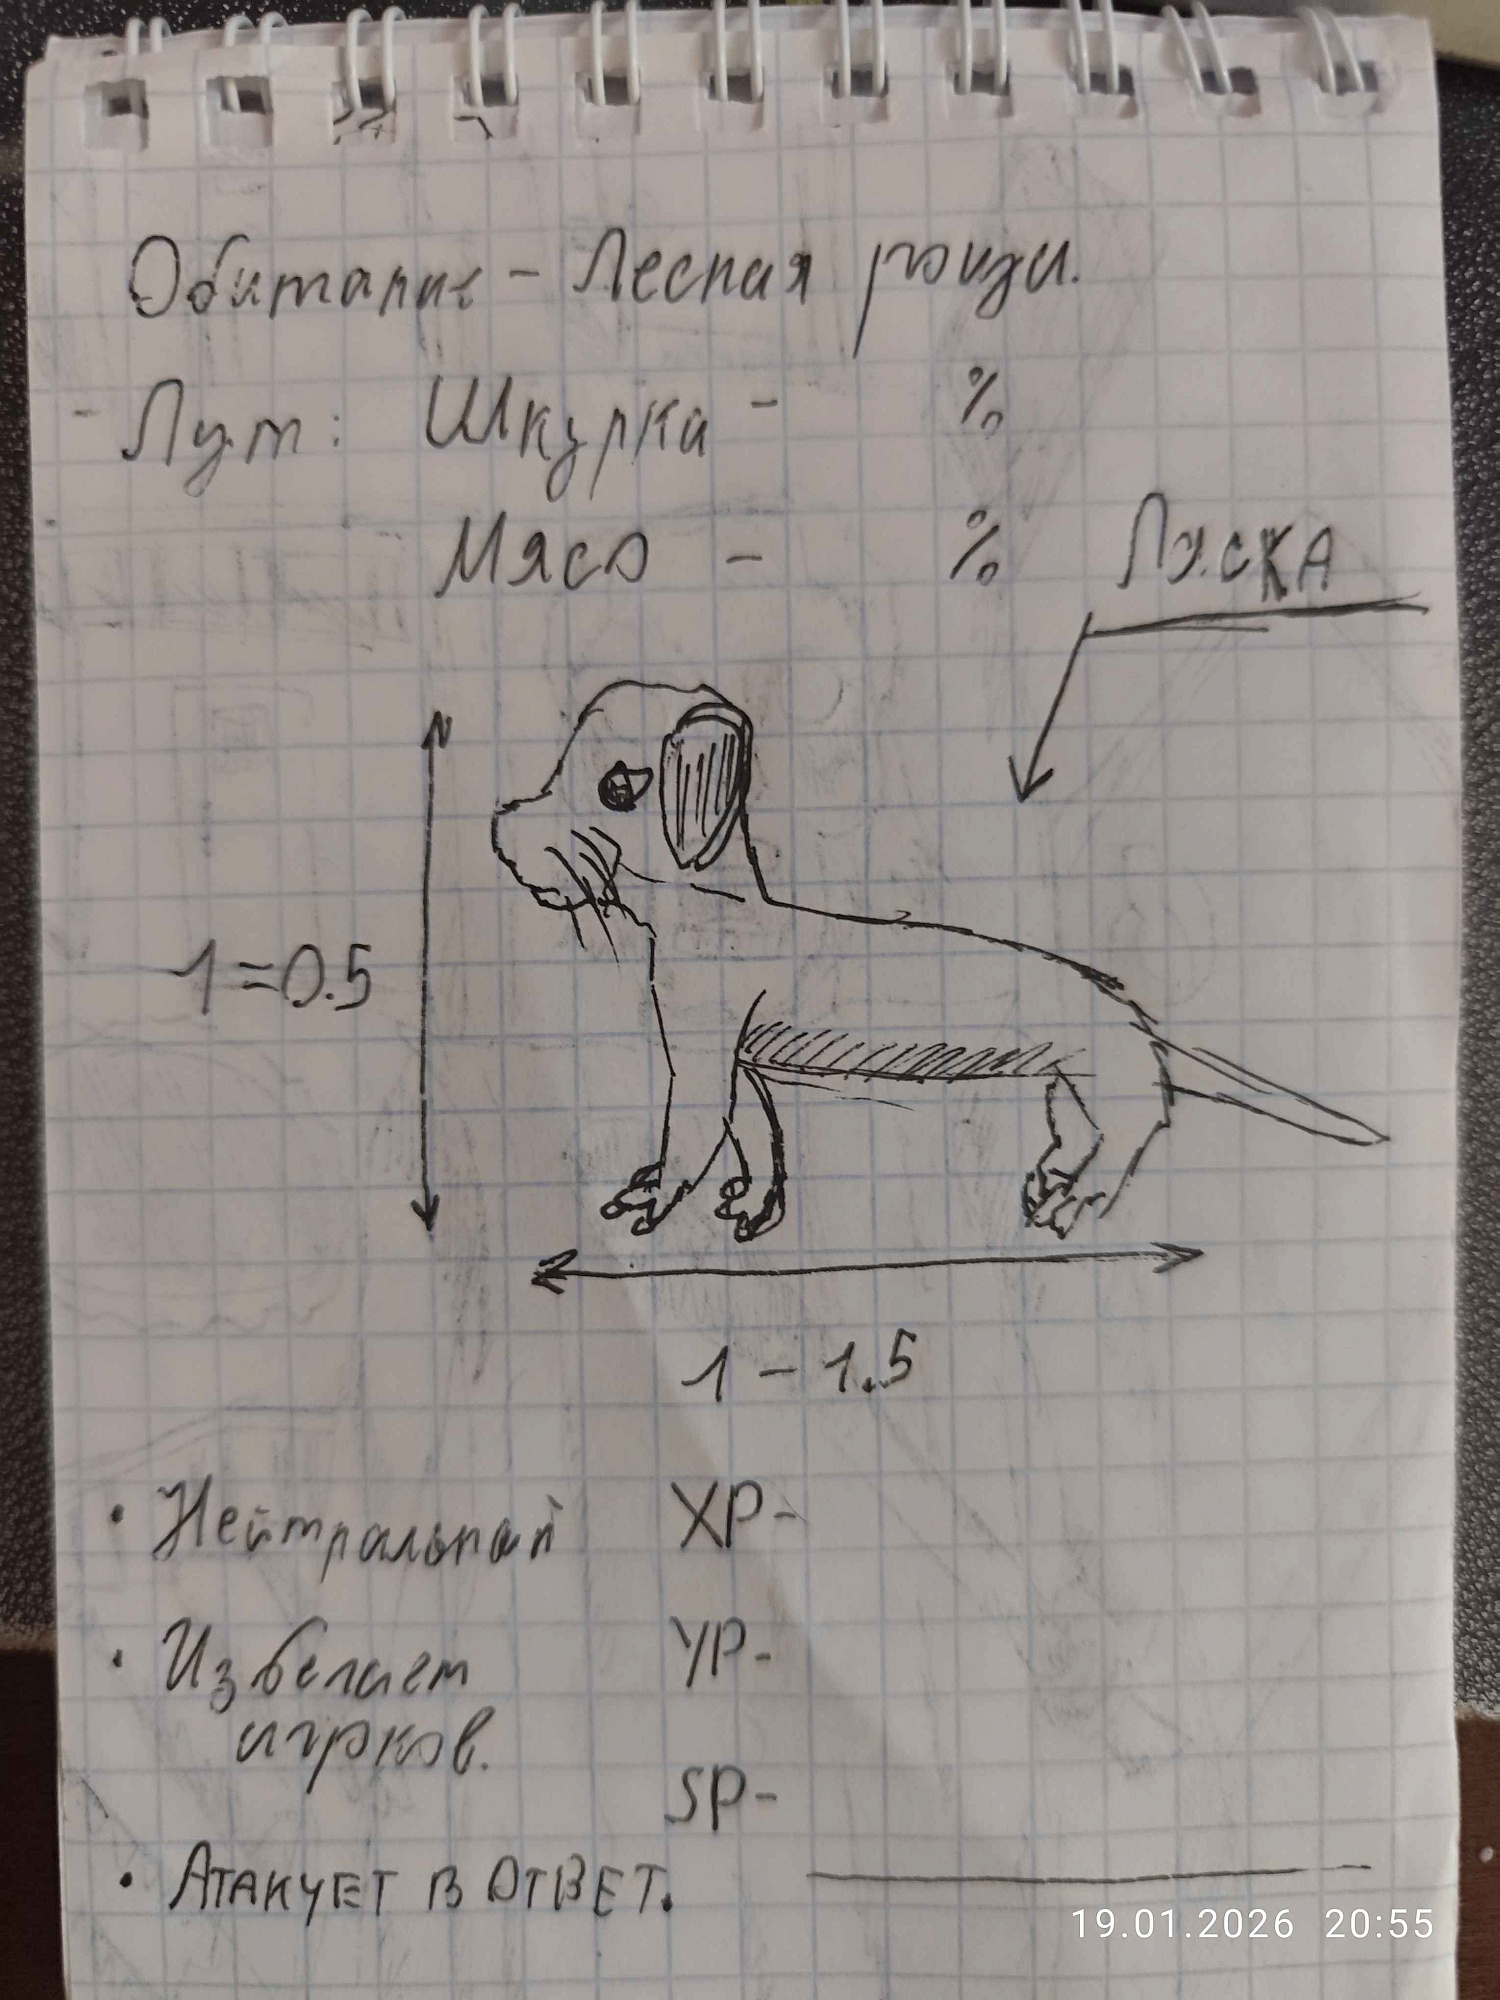 Обитание - Лесная рощи.
- Лут: Шкурка - %
Мясо - %
Ласка
1=0.5
1 - 1.5
• Нейтральный XP-
• Избегает YP-
игрков.
SP-
• Атакует в ответ.
19.01.2026 20:55